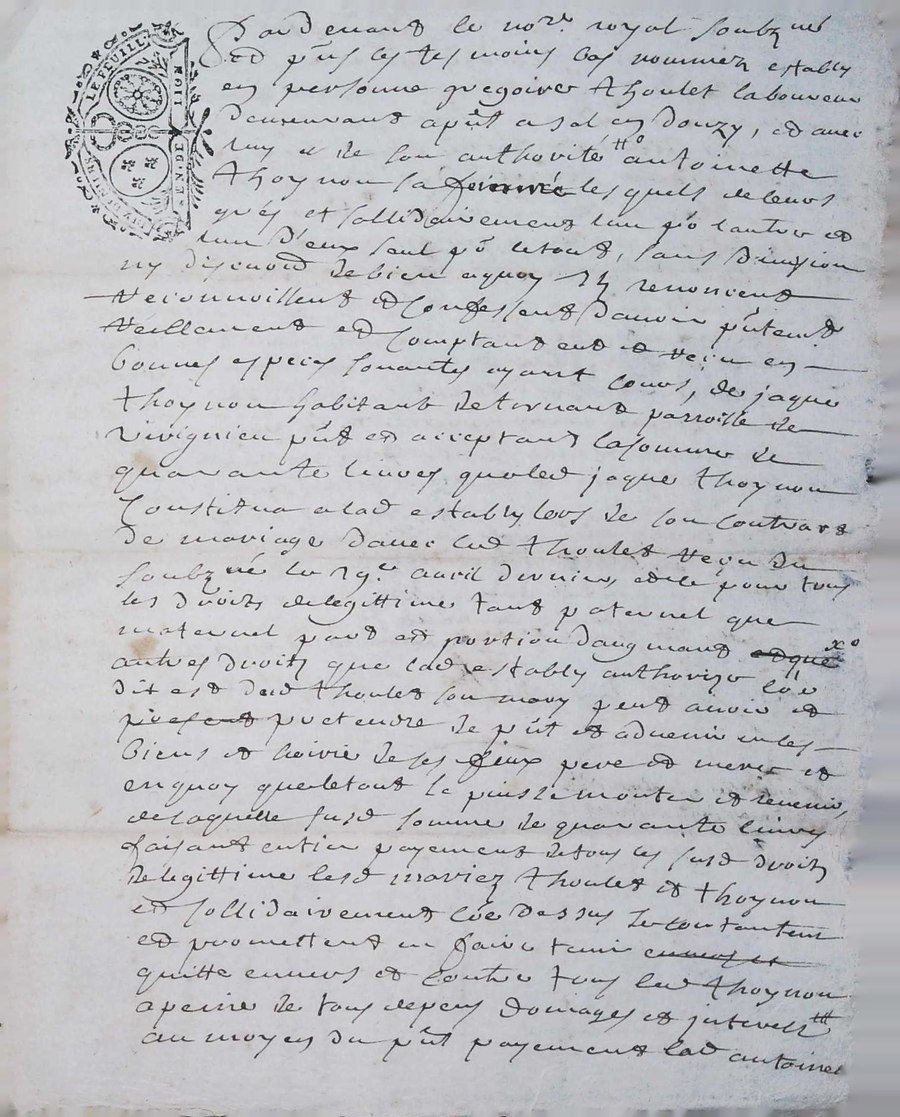 LE FEUILL
MOIT
EN. DE
Pardevant le nore royal soubzné
et pñs les tesmoins bas nommez estably
en personne gregoire thoulet laboureur
demeurant apñt a sal en Donzy, et avec
luy et de son authorité tto antoinette
thoynon sa femme lesquels de leurs
grés et sollidairement lun po lautre et
lun d'eux seul po letout, sans division
ny discution de bien aquoy ils renoncent
reconnoissent et confessent d'avoir pñtemt
reellement et comptant eut et reçu en
bonnes especes sonantes ayant cours, de jaque
thoynon habitant de parroisse de
pñt et acceptant lasomme de
quarante livres queled jaque thoynon
constitua alad estably lors de son contract
de mariage d'avec led thoulet reçu du
soubzné le 29e avril dernier et ce pour tous
les droits delegittime tant paternel que
maternel part et portion d'augmant et que xo
autres droits que lad estably authorizé côe
dit est dud thoulet son mary peut avoir et
present pretendre de pñt et advenir en les
biens et hoirie de ses feux pere et mere et
en quoy que letout le puisse monter et revenir,
de laquelle susd somme de quarante livres
faisant entier payement de tous les susd droits
delegittime lesd mariez thoulet et thoynon
et sollidairement côe dessus se contentent
et promettent en faire tenir envers et
quitte envers et contre tous led thoynon
apeine de tous depens domages et jnterests ttt
au moyen du pñt payement lad antoinet